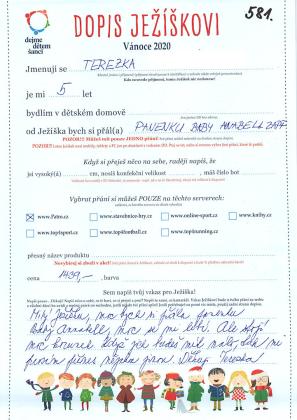 581.
dejme dětem šanci
DOPIS JEŽÍŠKOVI
Vánoce 2020
Jmenuji se TEREZKA
je mi 5 let
bydlím v dětském domově
od Ježíška bych si přál(a) PANENKU BABY ANABELL ZAPF
POZOR!!! Můžeš mít pouze Jedno přání!
Když si přeješ něco na sebe, raději napiš, že
jsi vysoký(á) cm, nosíš konfekční velikost , máš číslo bot
Vybrat přání si můžeš POUZE na těchto serverech:
www.Patro.cz www.stavebnice-hry.cz www.online-sport.cz www.knihy.cz
www.topisport.cz www.topfootball.cz www.toprunning.cz
přesný název produktu
cena 1439,- , barva
Sem napiš tvůj vzkaz pro Ježíška!
Milý Ježíšku, moc bych si přála panenku
Baby Annabell moc se mi líbí. Ale stojí
moc korunek když jen budeš mít málo tak mi
prosím přines nějakou jinou. Děkuji Terezka